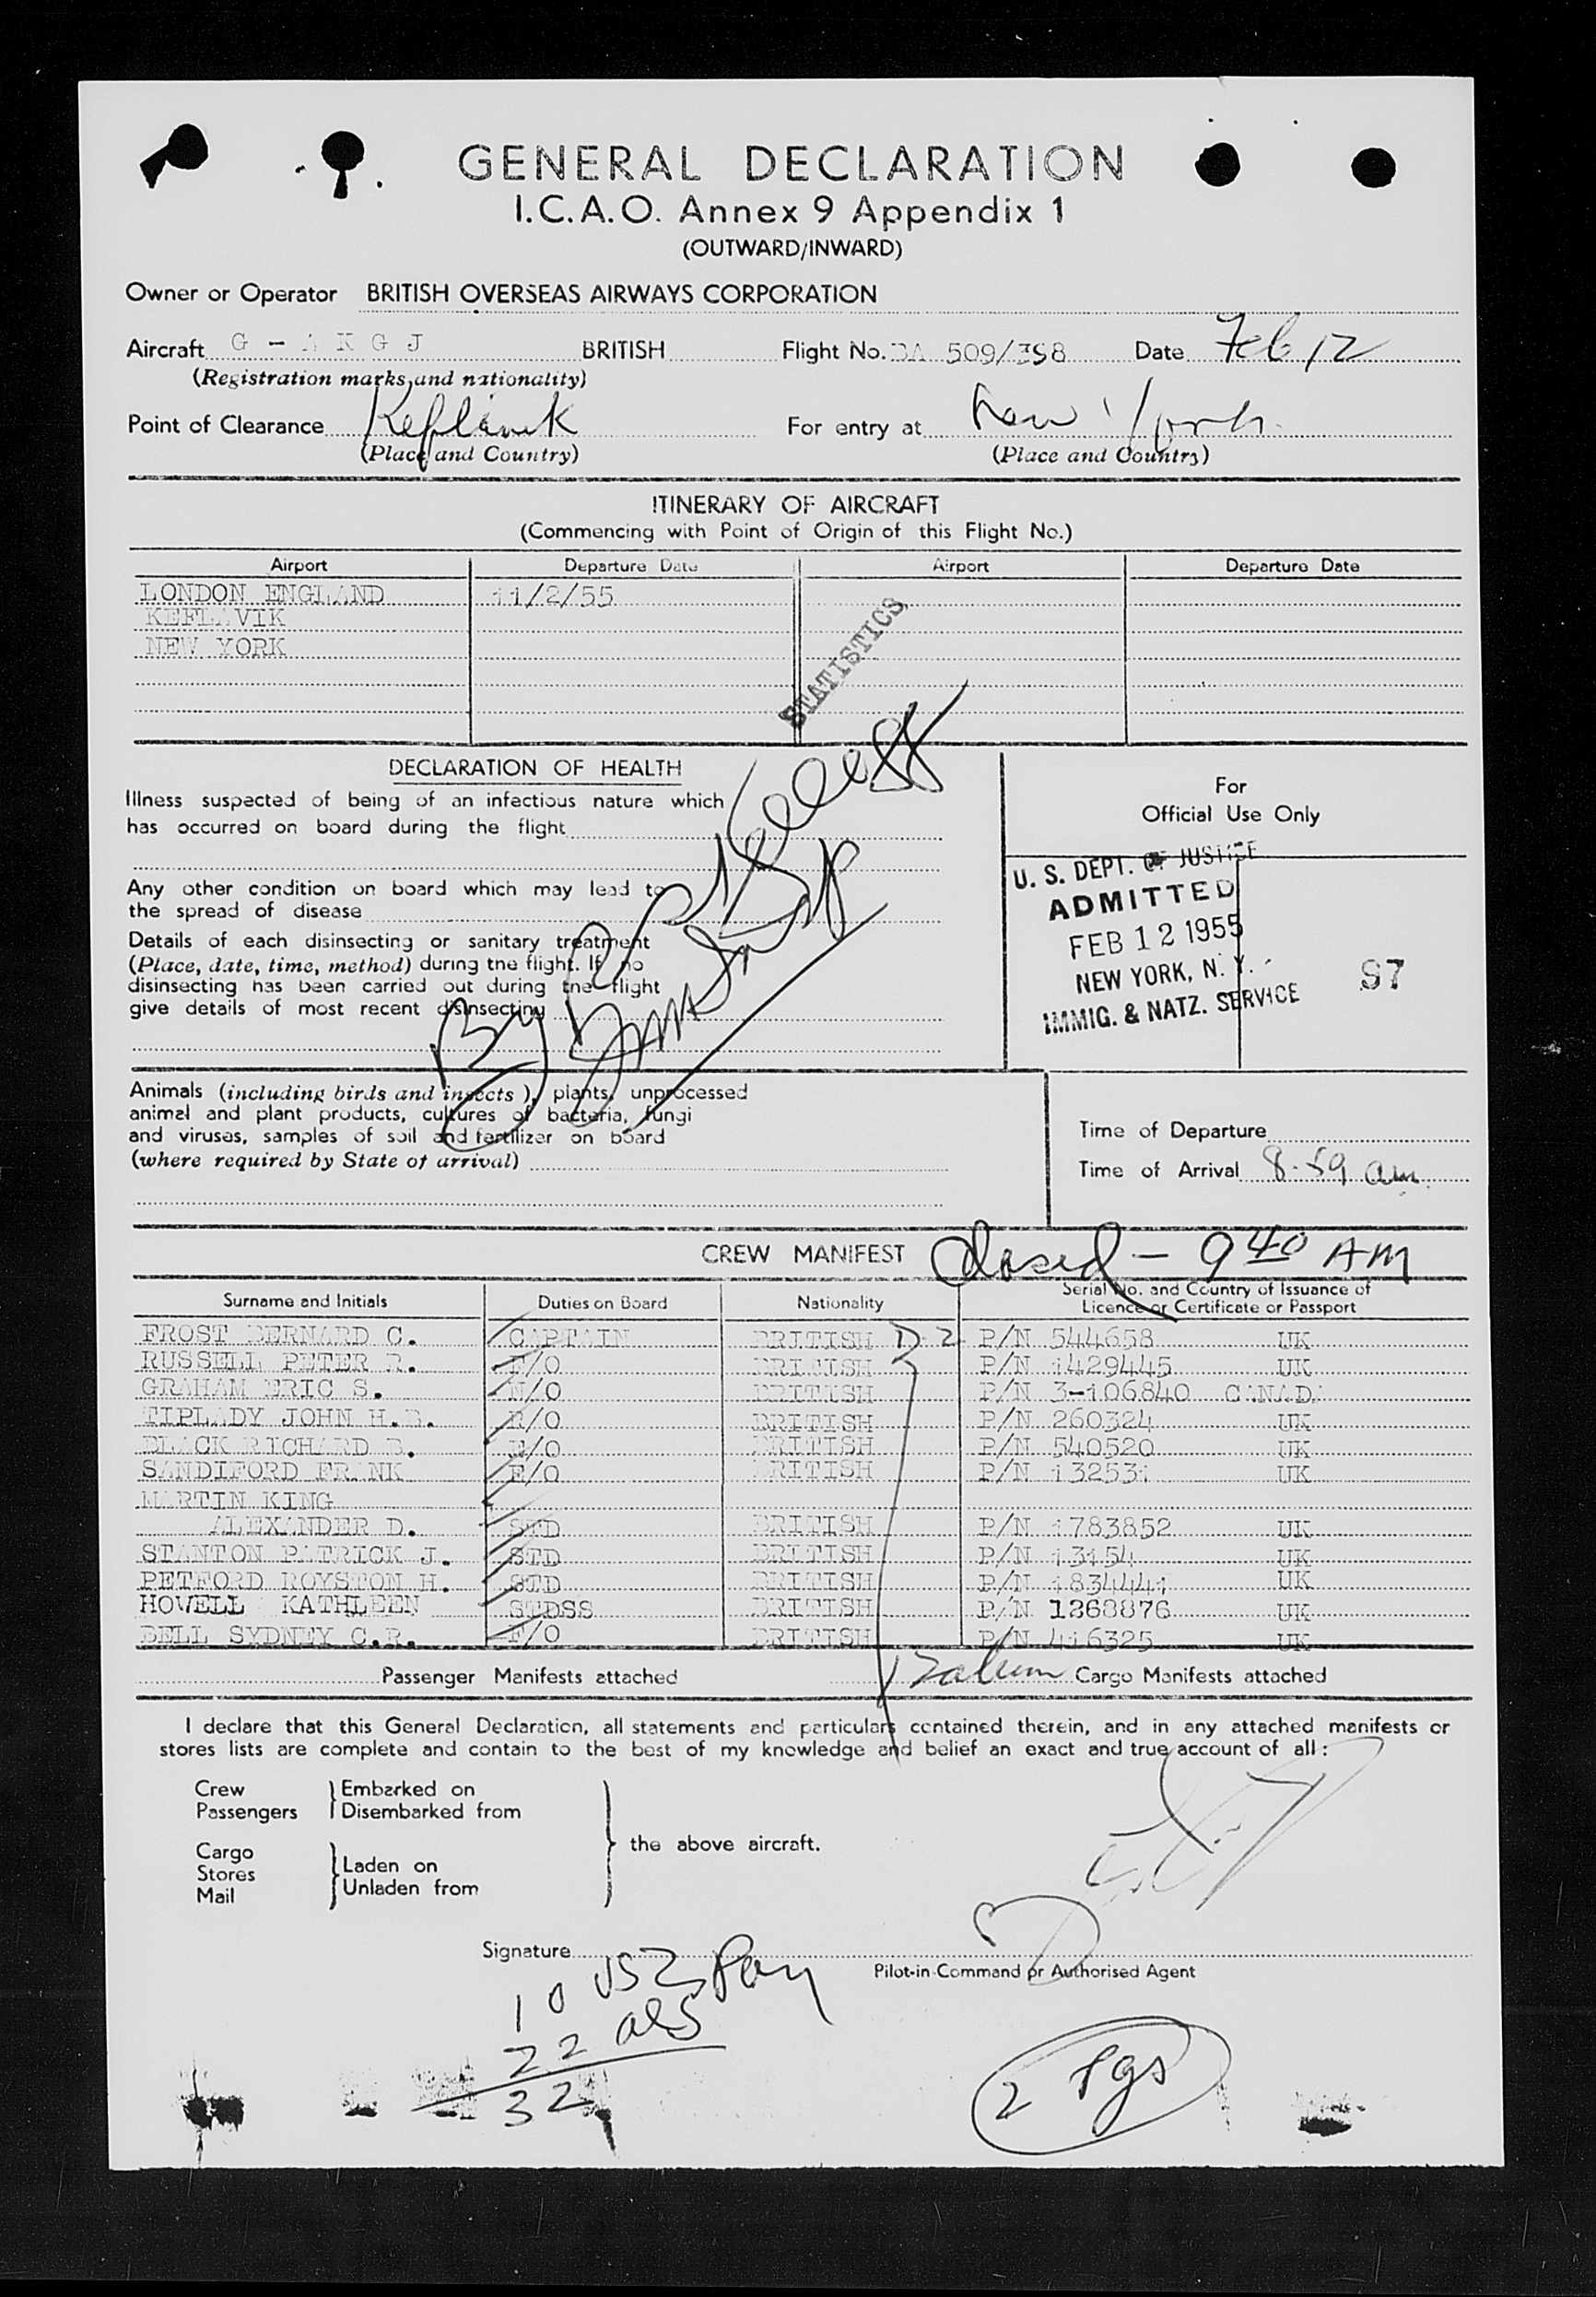 GENERAL DECLARATION
I.C.A.O. Annex 9 Appendix 1
(OUTWARD/INWARD)
Owner or Operator BRITISH OVERSEAS AIRWAYS CORPORATION
Aircraft G - A K G J BRITISH Flight No. BA 509/ Date Feb 12
(Registration marks and nationality)
Point of Clearance Keflavik For entry at New York
(Place and Country) (Place and Country)
ITINERARY OF AIRCRAFT
(Commencing with Point of Origin of this Flight No.)
Airport Departure Date Airport Departure Date
LONDON ENGLAND 11/2/55
KEFLAVIK
NEW YORK
STATISTICS
DECLARATION OF HEALTH
Illness suspected of being of an infectious nature which
has occurred on board during the flight
Any other condition on board which may lead to
the spread of disease
Details of each disinsecting or sanitary treatment
(Place, date, time, method) during the flight. If no
disinsecting has been carried out during the flight
give details of most recent disinsecting
By
For
Official Use Only
U. S. DEPT. OF JUSTICE
ADMITTED
FEB 12 1955
NEW YORK, N. Y.
IMMIG. & NATZ. SERVICE
97
Animals (including birds and insects), plants, unprocessed
animal and plant products, cultures of bacteria, fungi
and viruses, samples of soil and fertilizer on board
(where required by State of arrival)
Time of Departure
Time of Arrival 8.59 am
CREW MANIFEST Closed - 9 40 AM
Surname and Initials Duties on Board Nationality Serial No. and Country of Issuance of
Licence or Certificate or Passport
FROST BERNARD C. CAPTAIN BRITISH D-2 P/N 544658 UK
RUSSELL PETER R. F/O BRITISH P/N 1429445 UK
GRAHAM ERIC S. N/O BRITISH P/N 3-106840 CANADA
TIPLADY JOHN H.B. R/O BRITISH P/N 260324 UK
BLACK RICHARD B. E/O BRITISH P/N 540520 UK
SANDIFORD FRANK E/O BRITISH P/N 132531 UK
MARTIN KING
ALEXANDER D. STD BRITISH P/N 1783852 UK
STANTON PATRICK J. STD BRITISH P/N 13154 UK
PETFORD ROYSTON H. STD BRITISH P/N 1834441 UK
HOVELL KATHLEEN STDSS BRITISH P/N 1268876 UK
BELL SYDNEY C.R. F/O BRITISH P/N 416325 UK
Passenger Manifests attached Cargo Manifests attached
I declare that this General Declaration, all statements and particulars contained therein, and in any attached manifests or
stores lists are complete and contain to the best of my knowledge and belief an exact and true account of all:
Crew
Passengers
Embarked on
Disembarked from
Cargo
Stores
Mail
Laden on
Unladen from
the above aircraft.
Signature
Pilot-in-Command or Authorised Agent
10 USZ
22 als
32
2 Pgs